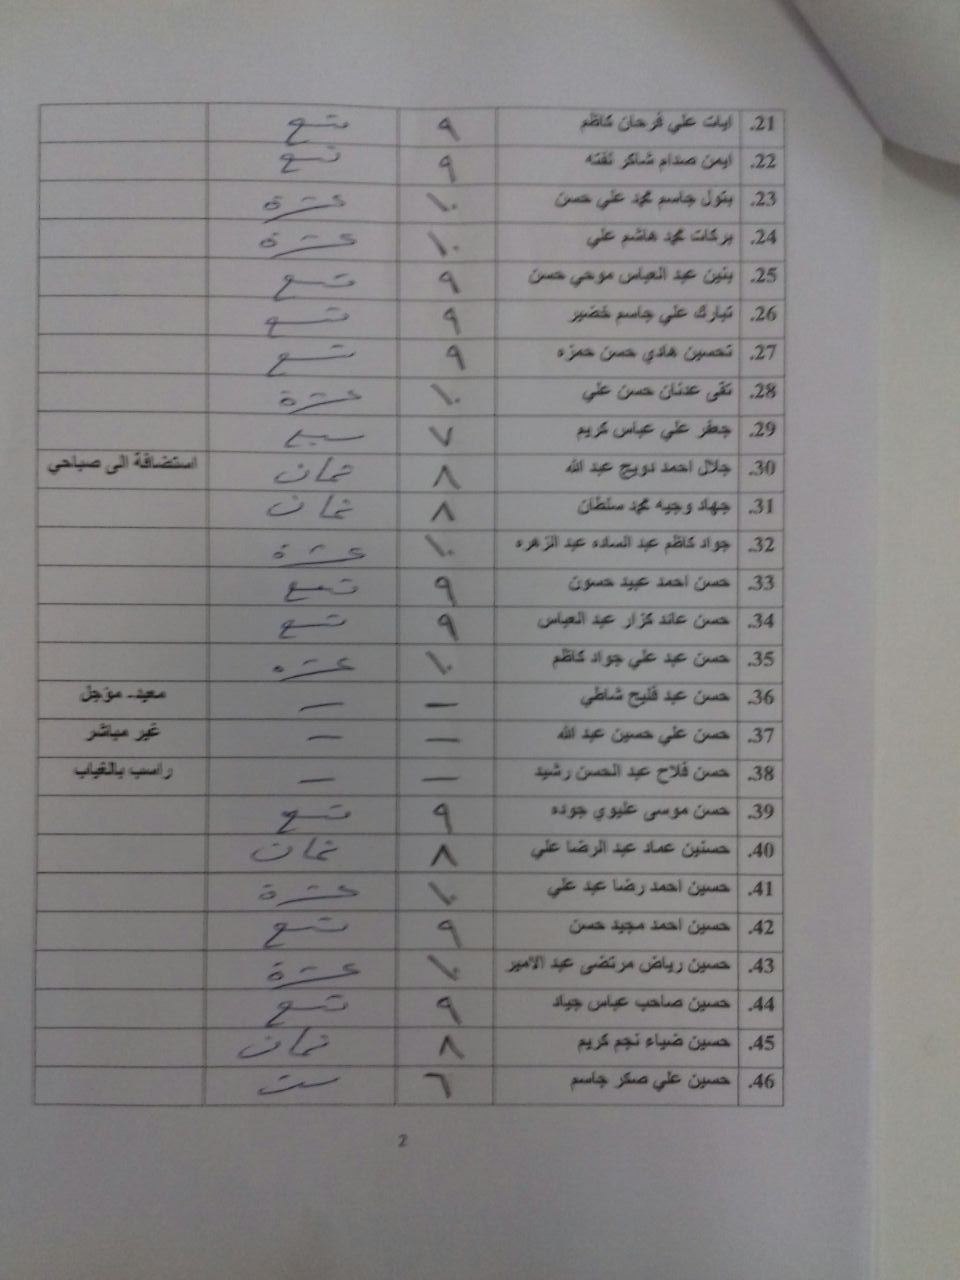 21. ايات علي فرحان كاظم ٩ تسع
22. ايمن صدام شاكر ٩ تسع
23. بتول جاسم محمد علي حسن ١٠ عشرة
24. بركات محمد هاشم علي ١٠ عشرة
25. بنين عبد العباس موحي حسن ٩ تسع
26. تبارك علي جاسم خضير ٩ تسع
27. تحسين هادي حسن حمزه ٩ تسع
28. تقى عدنان حسن علي ١٠ عشرة
29. جعفر علي عباس كريم ٧ سبع
30. جلال احمد دويج عبد الله ٨ ثمان استضافة الى صباحي
31. جهاد وجيه محمد سلطان ٨ ثمان
32. جواد كاظم عبد الساده عبد الزهره ١٠ عشرة
33. حسن احمد عبيد حسون ٩ تسع
34. حسن عائد كزار عبد العباس ٩ تسع
35. حسن عبد علي جواد كاظم ١٠ عشره
36. حسن عبد فليح شاطي — — معيد- مؤجل
37. حسن علي حسين عبد الله — — غير مباشر
38. حسن فلاح عبد الحسن رشيد — — راسب بالغياب
39. حسن موسى عليوي جوده ٩ تسع
40. حسنين عماد عبد الرضا علي ٨ ثمان
41. حسين احمد رضا عبد علي ١٠ عشرة
42. حسين احمد مجيد حسن ٩ تسع
43. حسين رياض مرتضى عبد الامير ١٠ عشرة
44. حسين صاحب عباس جياد ٩ تسع
45. حسين ضياء نجم كريم ٨ ثمان
46. حسين علي صكر جاسم ٦ ست
2